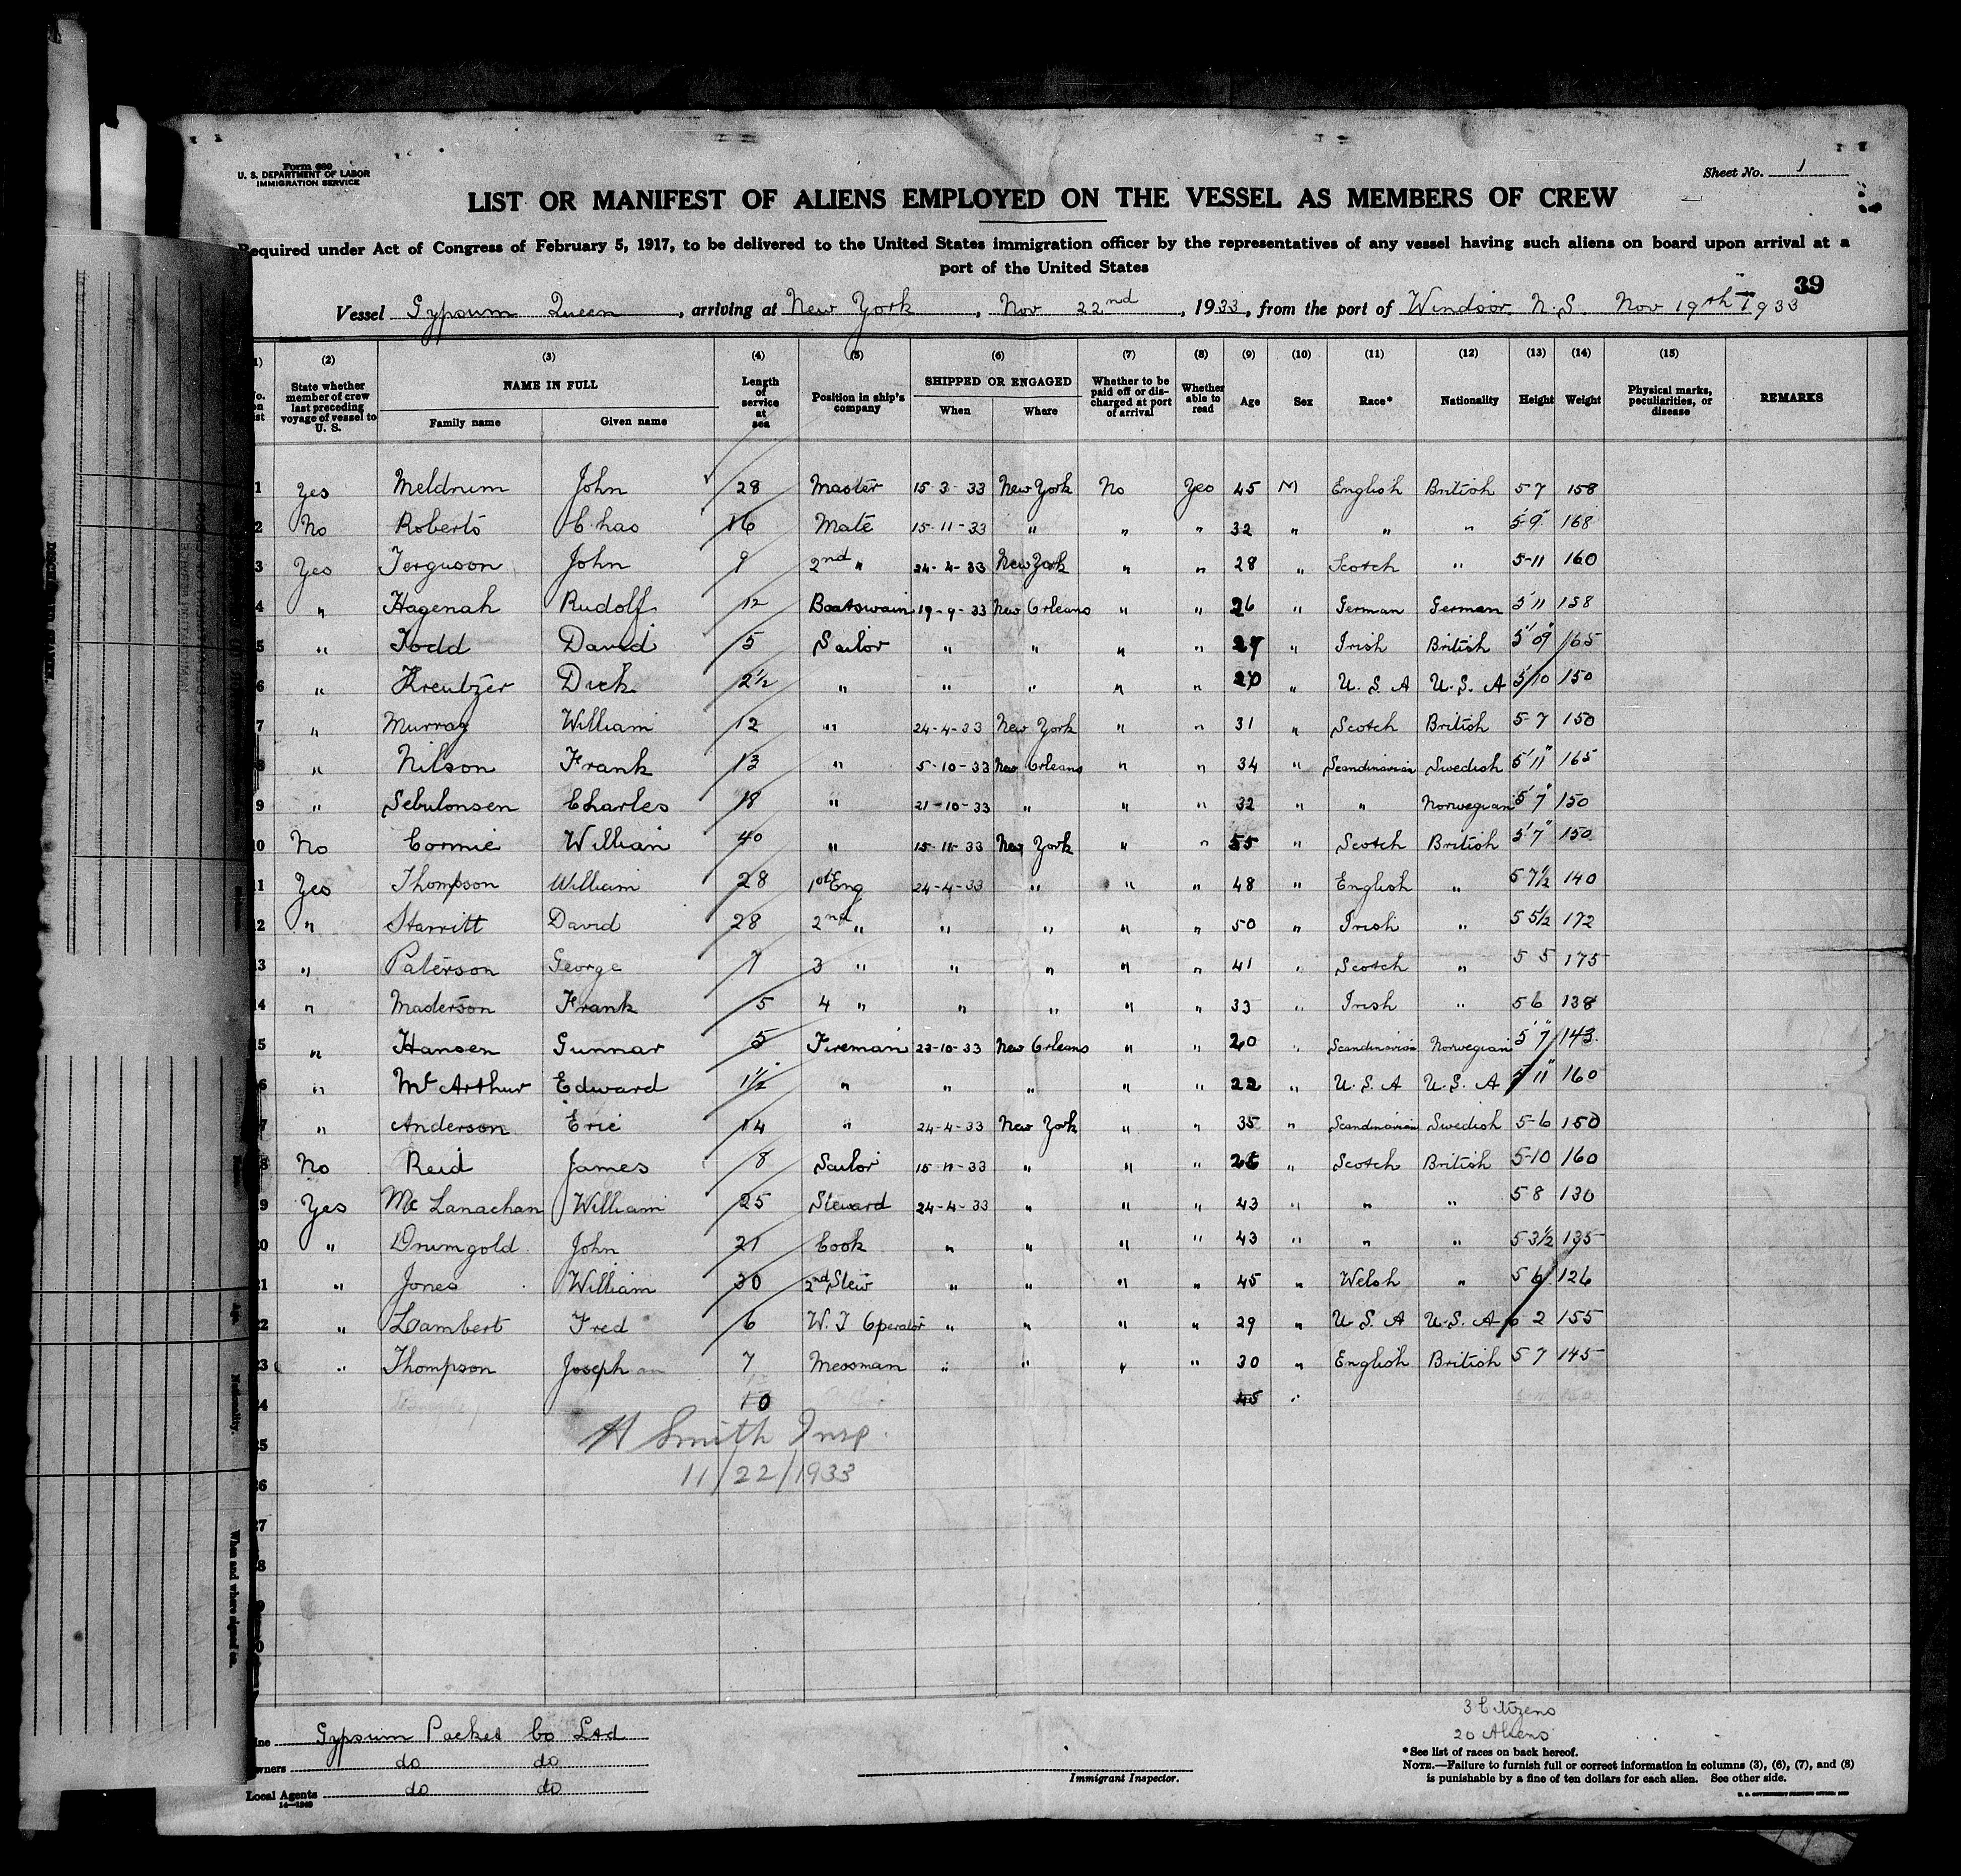 Form 680
U. S. DEPARTMENT OF LABOR
IMMIGRATION SERVICE
Sheet No. 1
LIST OR MANIFEST OF ALIENS EMPLOYED ON THE VESSEL AS MEMBERS OF CREW
Required under Act of Congress of February 5, 1917, to be delivered to the United States immigration officer by the representatives of any vessel having such aliens on board upon arrival at a
port of the United States
39
Vessel Gypsum Queen, arriving at New York, Nov 22nd, 1933, from the port of Windsor N.S. Nov 19th 1933
(2) (3) (4) (5) (6) (7) (8) (9) (10) (11) (12) (13) (14) (15)
State whether member of crew last preceding voyage of vessel to U. S. NAME IN FULL Family name Given name Length of service at sea Position in ship's company SHIPPED OR ENGAGED When Where Whether to be paid off or discharged at port of arrival Whether able to read Age Sex Race* Nationality Height Weight Physical marks, peculiarities, or disease REMARKS
1 Yes Meldrum John 28 Master 15-3-33 New York No Yes 45 M English British 5-7 158
2 No Roberts Chas 16 Mate 15-11-33 " " " 32 " " " 5'9" 168
3 Yes Ferguson John 9 2nd " 24-4-33 New York " " 28 " Scotch " 5-11 160
4 " Hagenah Rudolf 12 Boatswain 19-9-33 New Orleans " " 26 " German German 5'11 158
5 " Todd David 5 Sailor " " " " 29 " Irish British 5'09" 165
6 " Kreutzer Dick 2½ " " " " " 20 " U. S. A U. S. A 5/10 150
7 " Murray William 12 " 24-4-33 New York " " 31 " Scotch British 5-7 150
8 " Nilson Frank 13 " 5-10-33 New Orleans " " 34 " Scandinavian Swedish 5'11" 165
9 " Sebulonsen Charles 18 " 21-10-33 " " " 32 " " Norwegian 5'7" 150
10 No Cormie William 40 " 15-11-33 New York " " 55 " Scotch British 5'7" 150
11 Yes Thompson William 28 1st Eng 24-4-33 " " " 48 " English " 5 7½ 140
12 " Starritt David 28 2nd " " " " " 50 " Irish " 5 5½ 172
13 " Paterson George 7 3 " " " " " 41 " Scotch " 5 5 175
14 " Maderson Frank 5 4 " " " " " 33 " Irish " 5 6 138
15 " Hansen Gunnar 5 Fireman 23-10-33 New Orleans " " 20 " Scandinavian Norwegian 5'7" 143
16 " McArthur Edward 1½ " " " " " 22 " U. S. A U. S. A 5'11" 160
17 " Anderson Eric 14 " 24-4-33 New York " " 35 " Scandinavian Swedish 5-6 150
18 No Reid James 8 Sailor 15-11-33 " " " 26 " Scotch British 5-10 160
19 Yes Mc Lanachan William 25 Steward 24-4-33 " " " 43 " " " 5 8 130
20 " Drumgold John 21 Cook " " " " 43 " " " 5 3½ 135
21 " Jones William 30 2nd Stew " " " " 45 " Welsh " 5 6 126
22 " Lambert Fred 6 W. T Operator " " " " 29 " U. S. A U. S. A 6 2 155
23 " Thompson Joseph 7 Messman " " " " 30 " English British 5 7 145
24 10 45 "
H Smith Insp.
25
11/22/1933
26
27
28
3 Citizens
20 Aliens
Line Gypsum Packet Co Ltd
Owners do do
Local Agents do do
14—1249
Immigrant Inspector.
*See list of races on back hereof.
NOTE.—Failure to furnish full or correct information in columns (3), (6), (7), and (8)
is punishable by a fine of ten dollars for each alien. See other side.
U. S. GOVERNMENT PRINTING OFFICE
Nationality.
When and where signed on.